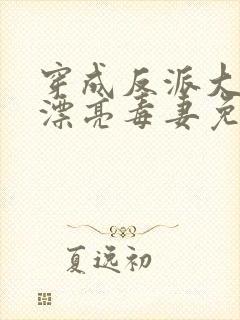 穿成反派大
漂亮毒妻免
夏远初